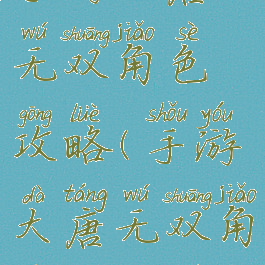 wú shuāng jiǎo sè
无双角色
gōng lüè shǒu yóu
攻略(手游
dà táng wú shuāng jiǎo
大唐无双角